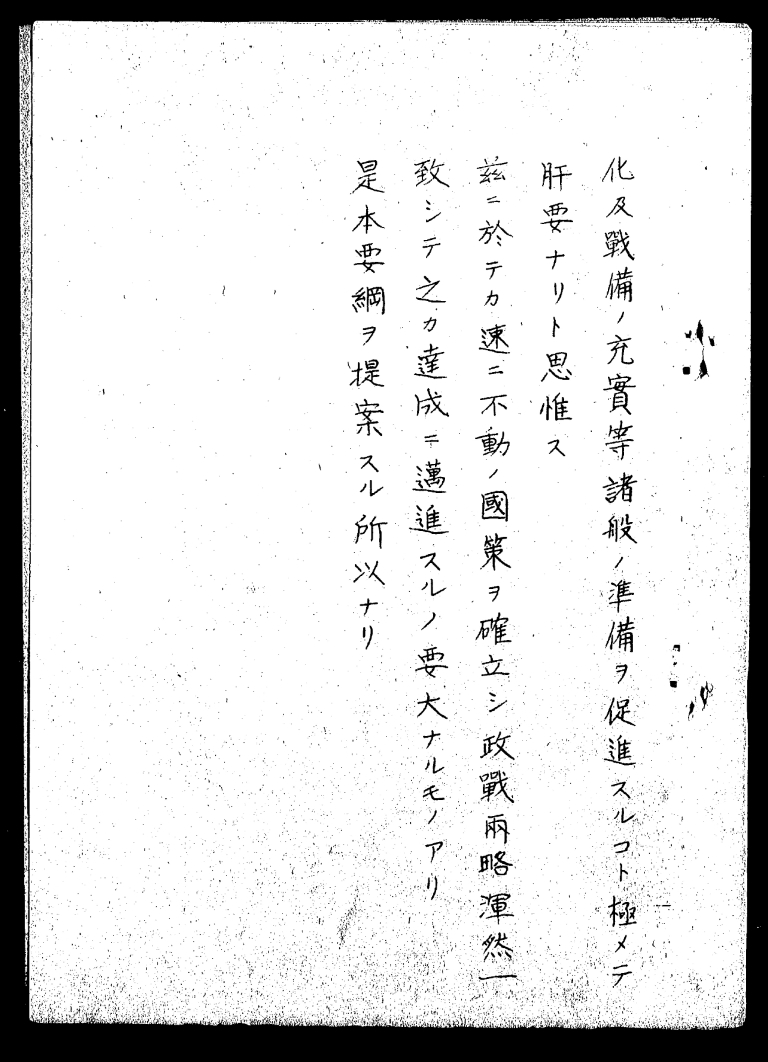 化及戰備ノ充實等諸般ノ準備ヲ促進スルコト極メテ
肝要ナリト思惟ス
茲ニ於テカ速ニ不動ノ國策ヲ確立シ政戰兩略渾然一
致シテ之カ達成ニ邁進スルノ要大ナルモノアリ
是本要綱ヲ提案スル所以ナリ